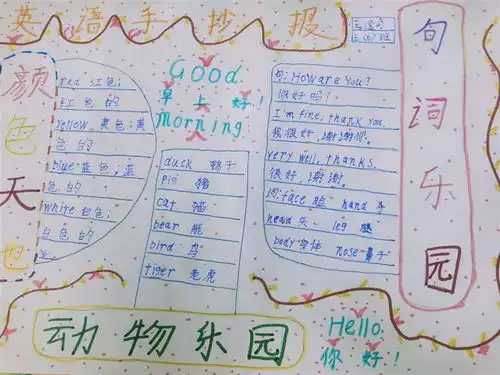 英语手抄报
三(6)班
颜色天地
red 红色;
红色的
yellow 黄色;黄
色的
blue 蓝色;蓝
色的
white 白色;
白色的
Good
早上好!
Morning
duck 鸭子
pig 猪
cat 猫
bear 熊
bird 鸟
tiger 老虎
句: How are you?
你好吗?
I'm fine, thank you.
我很好,谢谢你。
very well, thanks.
很好,谢谢。
词: face 脸 hand 手
head 头 leg 腿
body 身体 nose 鼻子
句词乐园
动物乐园
Hello.
你好!